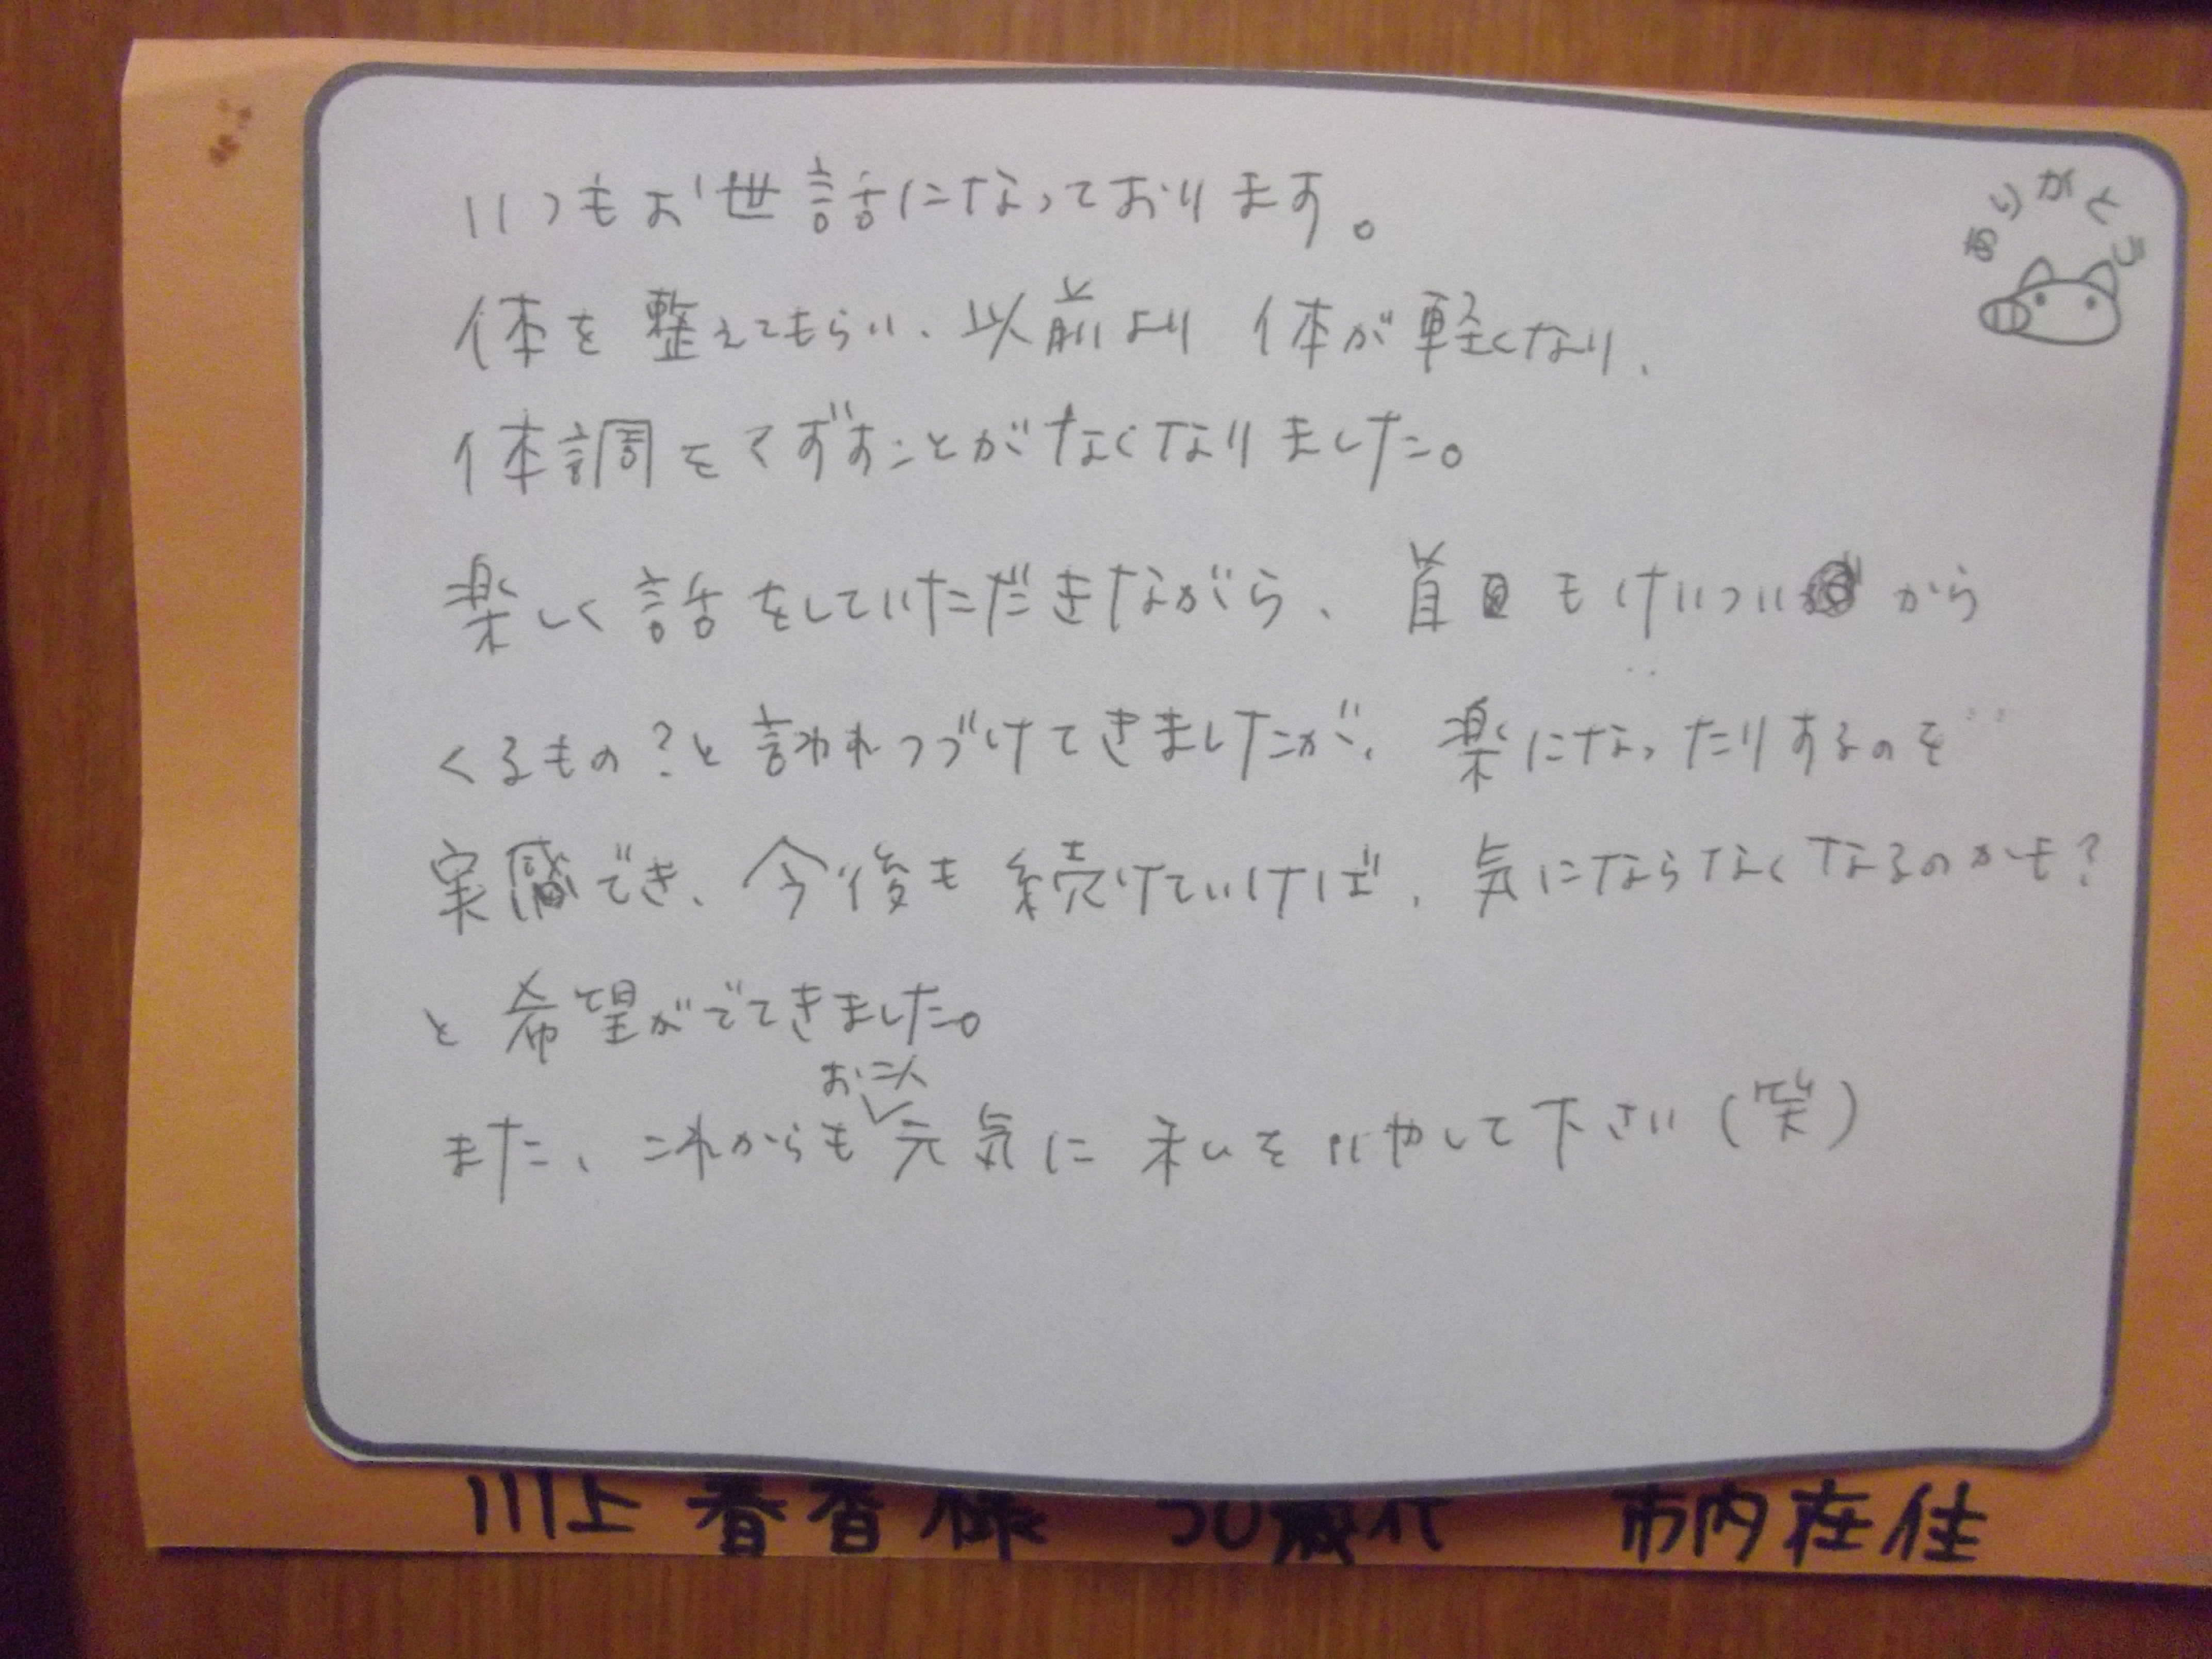 ありがとう
いつもお世話になっております。
体を整えてもらい、以前より体が軽くなり、
体調をくずすことがなくなりました。
楽しく話をしていただきながら、首もけいついから
くるもの?と言われつづけてきましたが、楽になったりするのを
実感でき、今後も続けていけば、気にならなくなるのかも?
と希望がでてきました。
お二人
また、これからも元気に私をいやして下さい(笑)
川上 春香様 市内在住